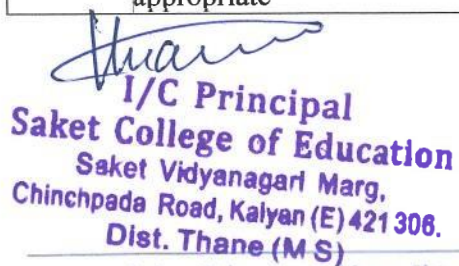 appropriate
I/C Principal
Saket College of Education
Saket Vidyanagari Marg,
Chinchpada Road, Kalyan (E) 421 306.
Dist. Thane (M S)